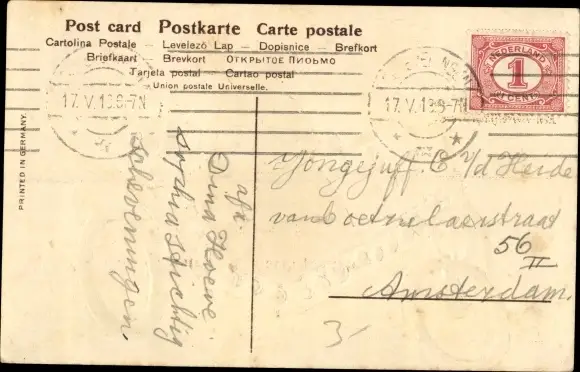 Post card Postkarte Carte postale
Cartolina Postale – Levelezö Lap – Dopisnice – Brefkort
Briefkaart Brevkort ОТКРЫТОЕ ПИСЬМО
Tarjeta postal Cartao postal
Union postale Universelle.
PRINTED IN GERMANY.
17.V.19
6-7N
17.V.19
6-7N
NEDERLAND
1
CENT
afz.
Dina Hoeve
Sophia Stichting
Scheveningen.
Jongejuff C. v/d Heide
van Boetzelaerstraat
56
II
Amsterdam.
3-